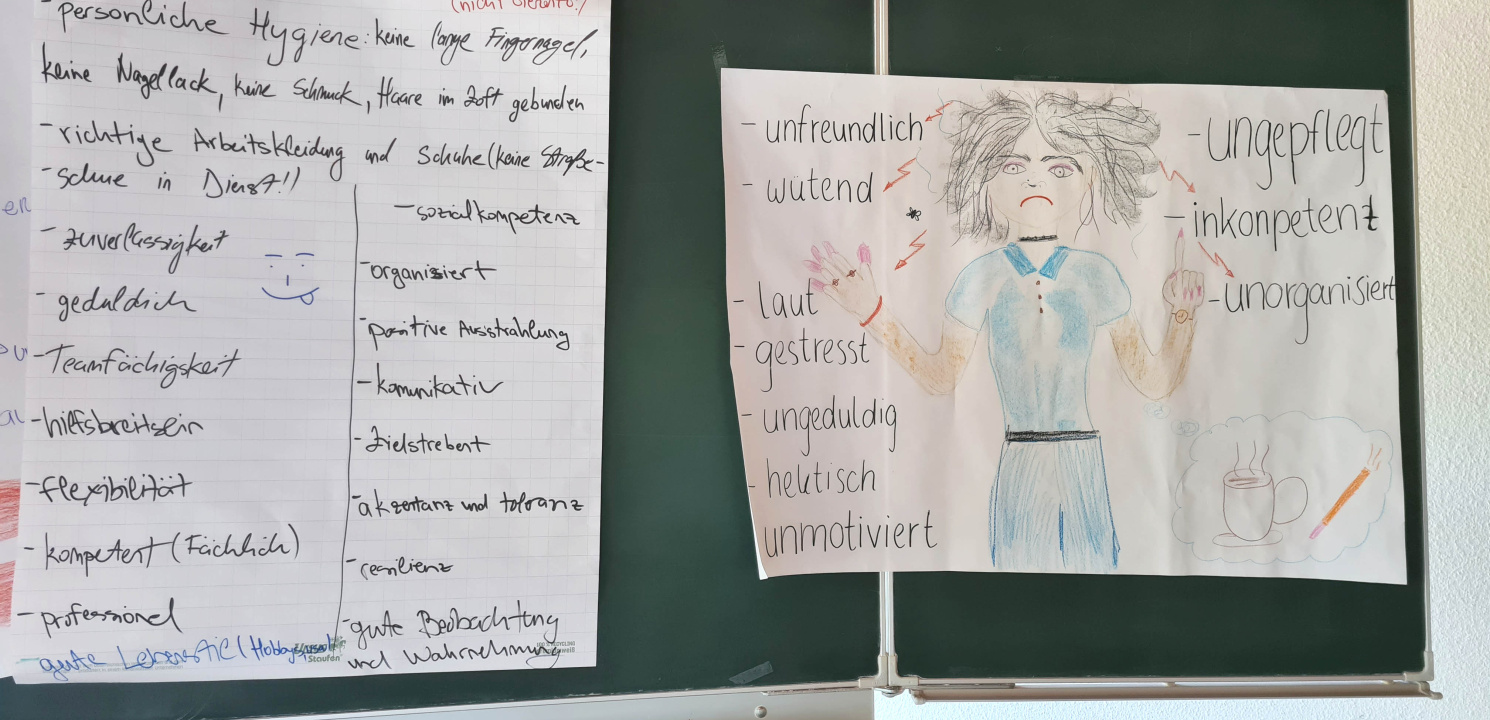 - persönliche Hygiene: keine lange Fingernagel,
keine Nagellack, keine Schmuck, Haare im Zoft gebunden
- richtige Arbeitskleidung und Schuhe (keine Straße-
- schue in Dienst!)
- zuverlässigkeit
- geduldich
- Teamfächigskeit
- hilfsbreitsein
- flexibilität
- kompetent (Fächlich)
- professionel
gute Lebensstiel (Hobbys,
- sozialkompetenz
- organisiert
- positive Ausstrahlung
- komunikativ
- Zielstrebert
- akzeptanz und toleranz
- resilienz
- gute Beobachtung
und Wahrnehmung
Staufen
- unfreundlich
- wütend
- laut
- gestresst
- ungeduldig
- hektisch
unmotiviert
- ungepflegt
- inkonpetenz
- unorganisiert